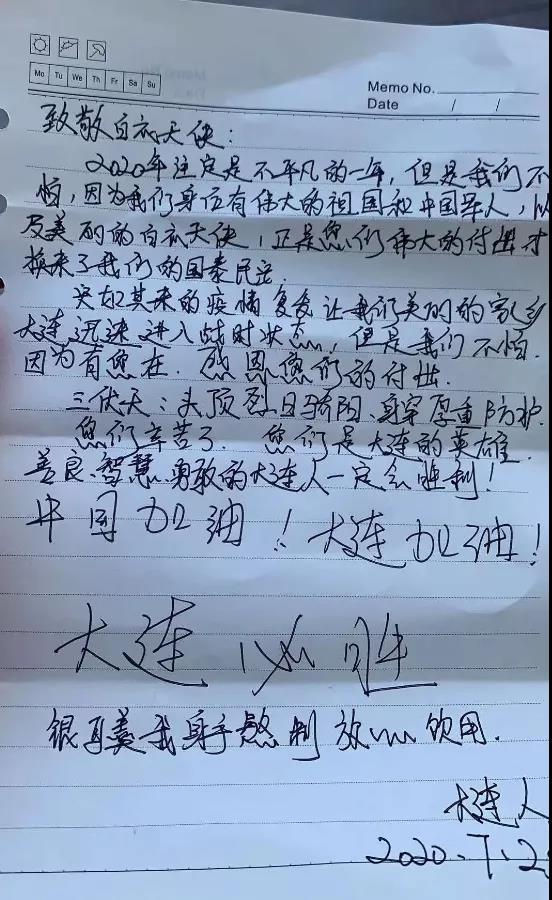 Mo Tu We Th Fr Sa Su
Memo No.
Date / /
致敬白衣天使：
2020年注定是不平凡的一年，但是我们不
怕，因为我们身位有伟大的祖国和中国军人，以
及美丽的白衣天使，正是您们伟大的付出才
换来了我们的国泰民安．
突如其来的疫情复发让我们美丽的家乡
大连迅速进入战时状态，但是我们不怕．
因为有您在．感恩您们的付出．
三伏天：头顶烈日骄阳、身穿厚重防护．
您们辛苦了．您们是大连的英雄．
善良、智慧、勇敢的大连人一定会胜利！
中国加油！大连加油！
大连必胜
银耳羹我亲手熬制放心饮用．
大连人
2020.7.2